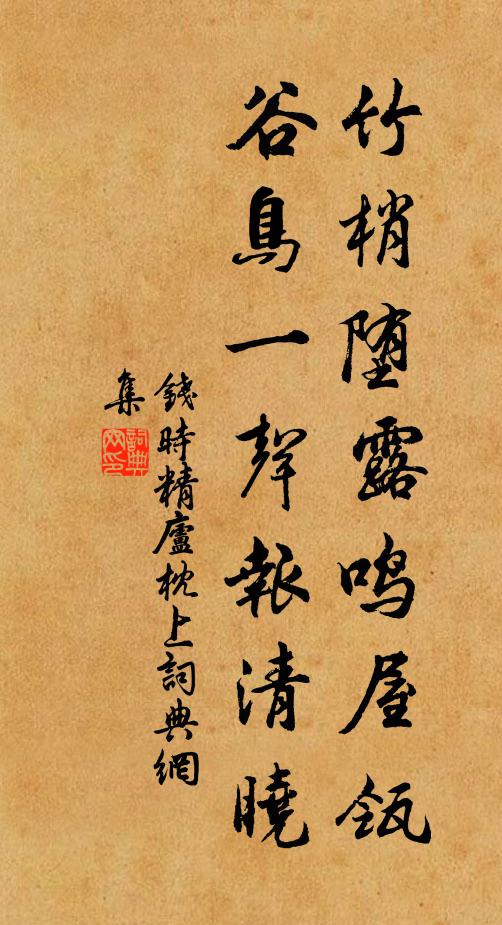 竹梢墮露鳴屋瓴
谷鳥一聲報清曉
錢時精廬枕上詞典網
集
詞典網印